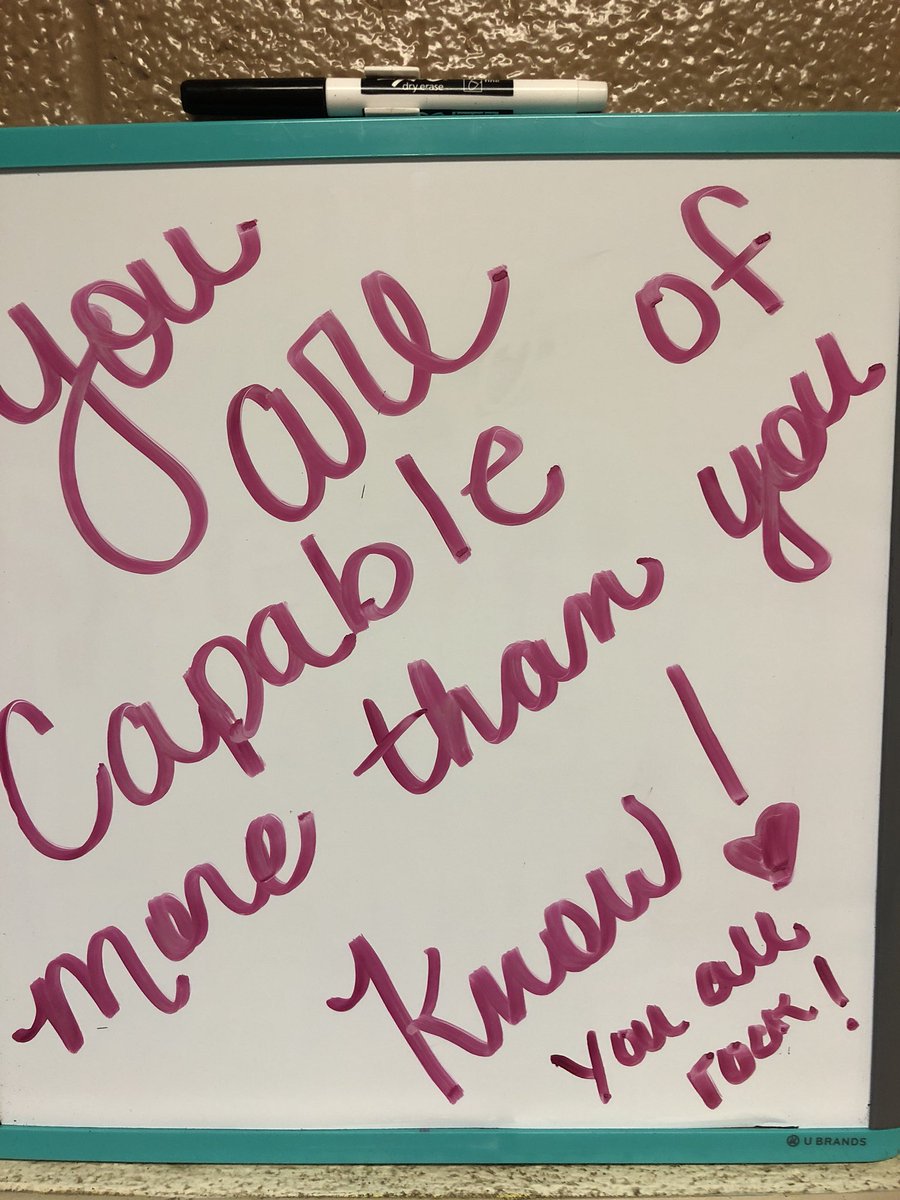 dry erase
you are of
Capable
more than you
Know!
You all
rock!
U BRANDS